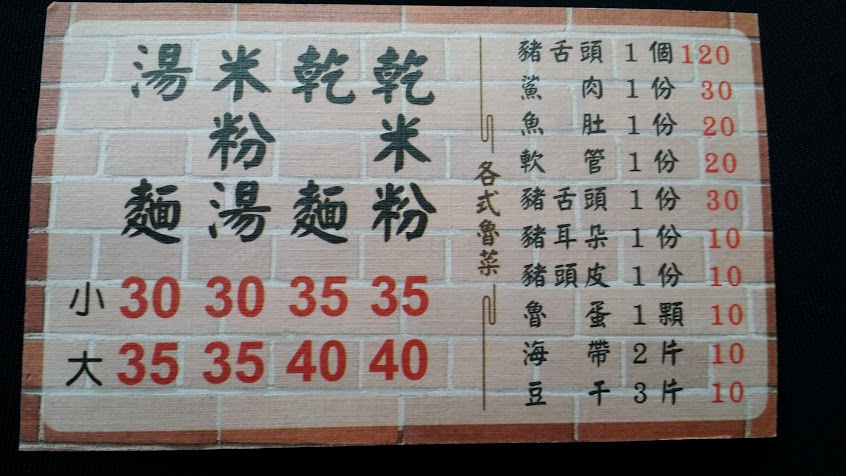 湯麵 米粉湯 乾麵 乾米粉
小 30 30 35 35
大 35 35 40 40
各式魯菜
豬舌頭 1個 120
鯊肉 1份 30
魚肚 1份 20
軟管 1份 20
豬舌頭 1份 30
豬耳朵 1份 10
豬頭皮 1份 10
魯蛋 1顆 10
海帶 2片 10
豆干 3片 10